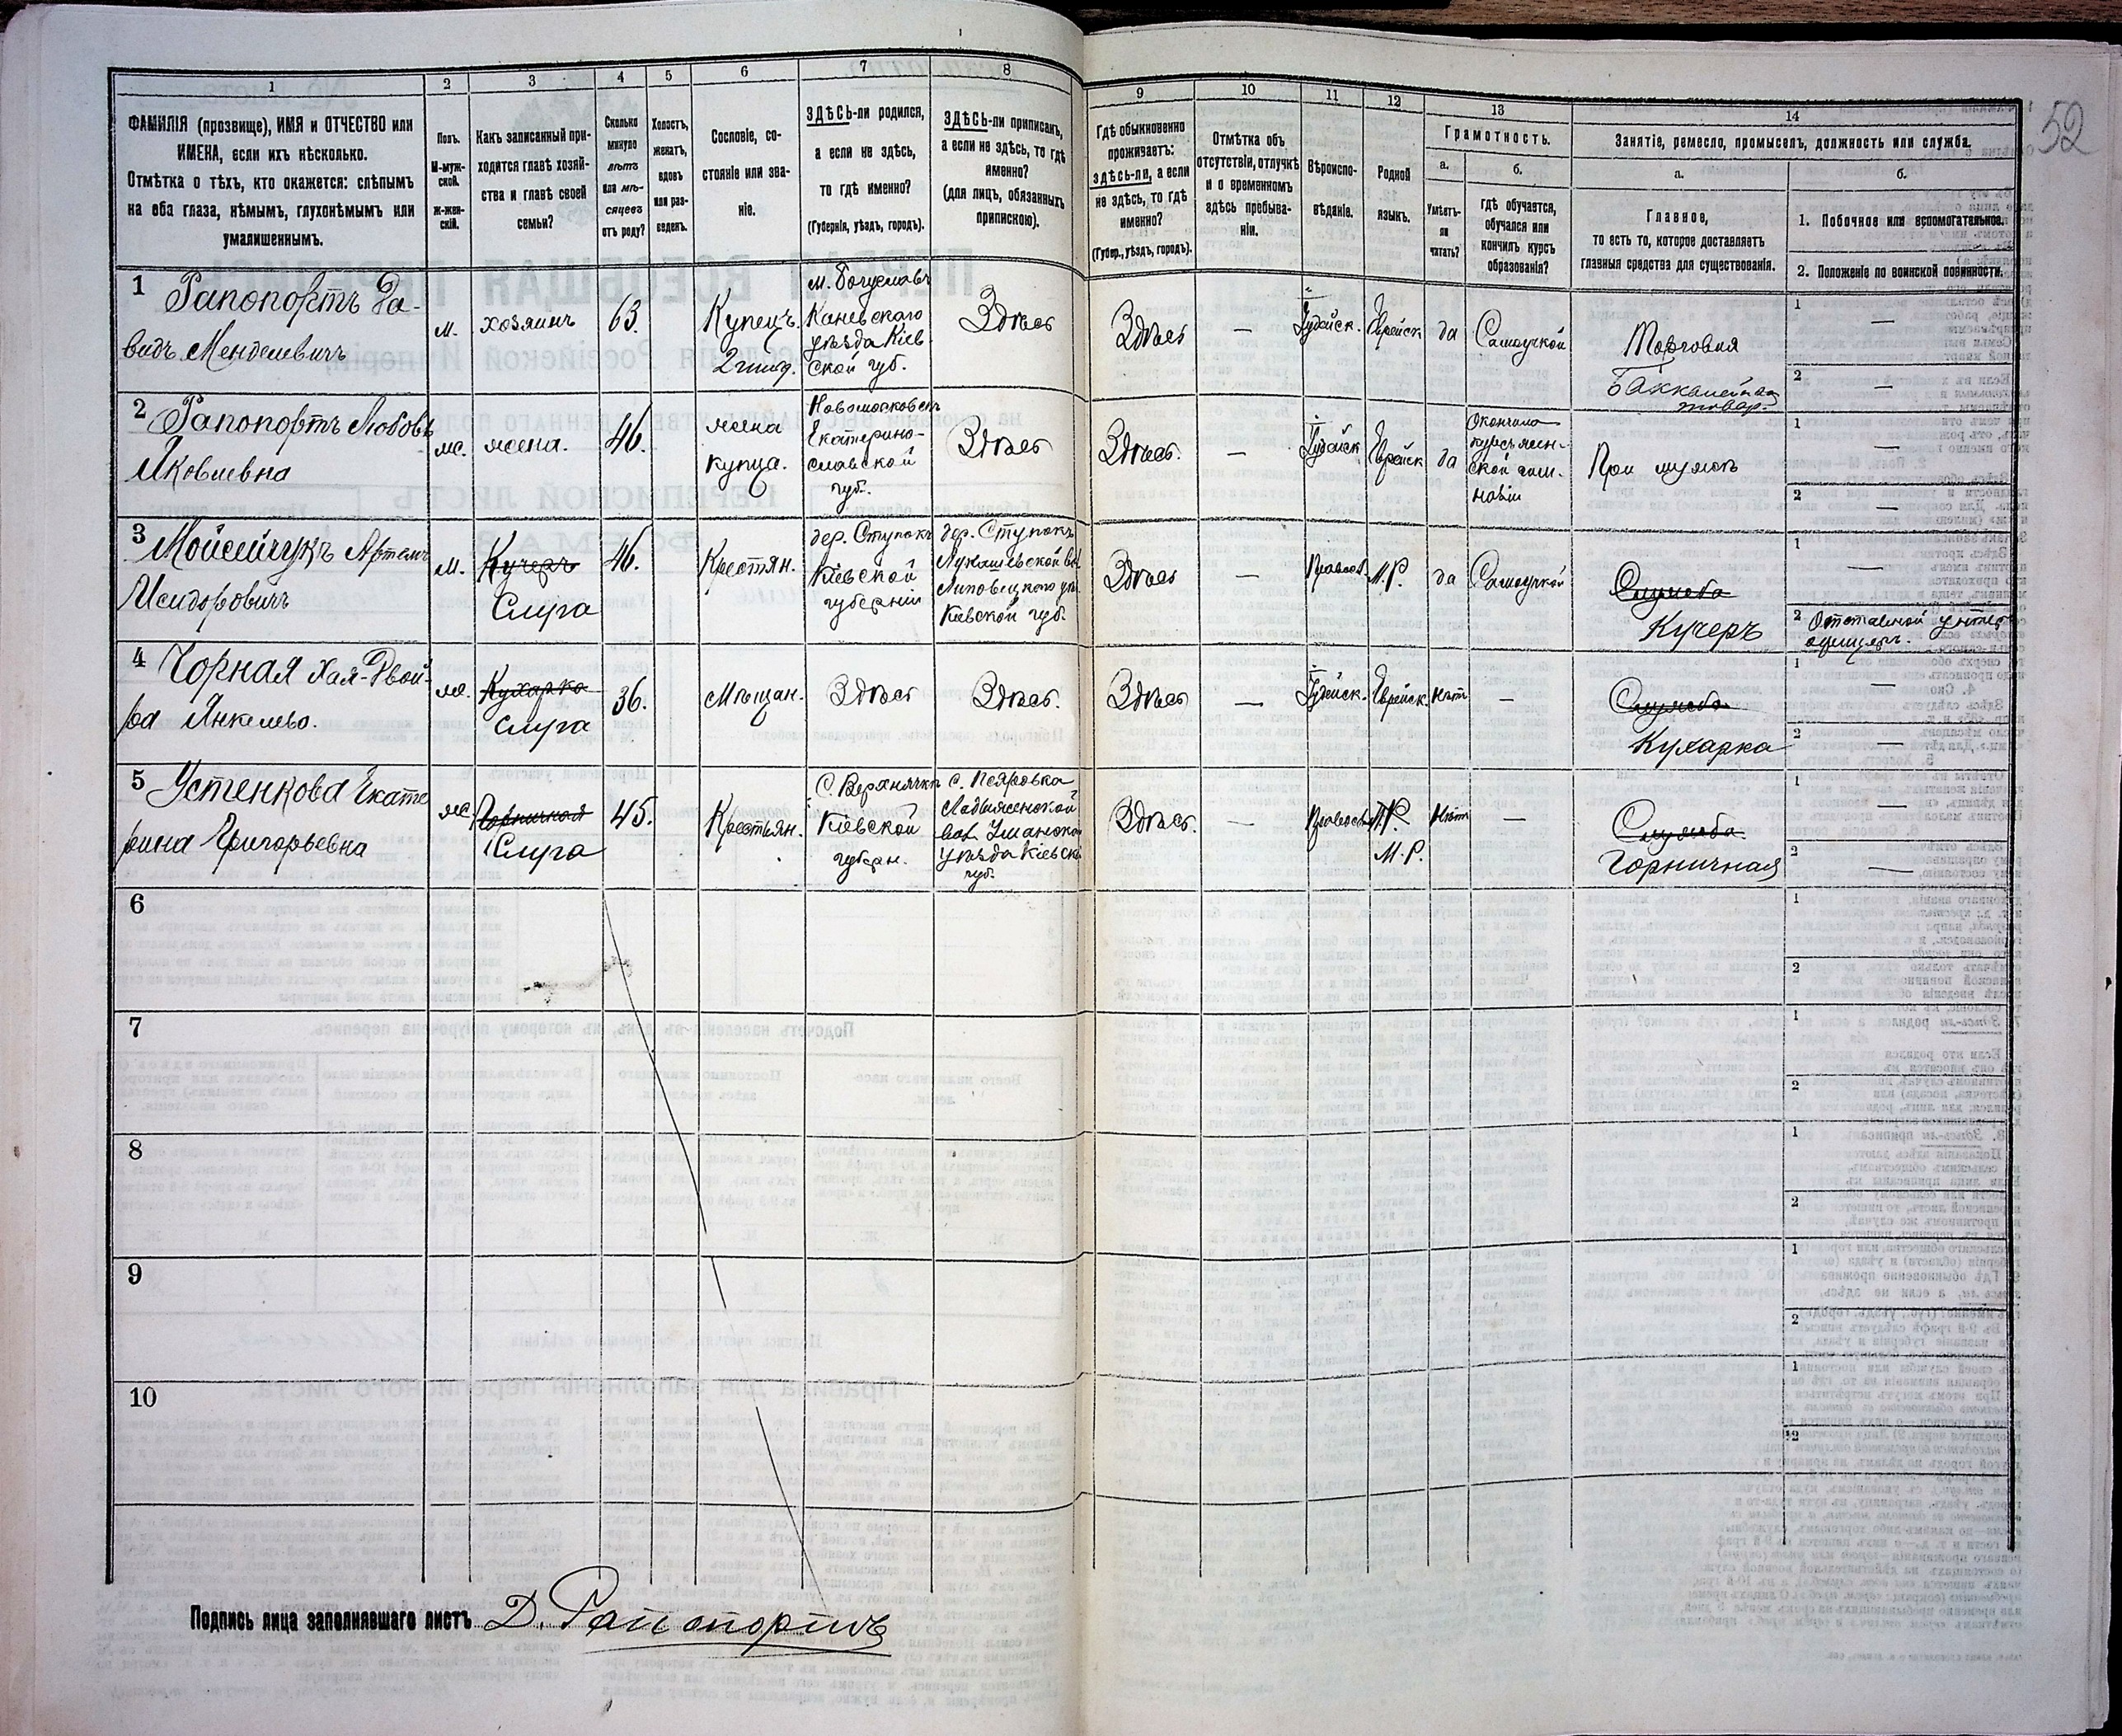 52
1
2
3
4
5
6
7
8
9
10
11
12
13
14
ФАМИЛІЯ (прозвище), ИМЯ и ОТЧЕСТВО или
ИМЕНА, если ихъ нѣсколько.
Отмѣтка о тѣхъ, кто окажется: слѣпымъ
на оба глаза, нѣмымъ, глухонѣмымъ или
умалишеннымъ.
Полъ.
М-муж-
ской.
Ж-жен-
скій.
Какъ записанный при-
ходится главѣ хозяй-
ства и главѣ своей
семьи?
Сколько
минуло
лѣтъ
или мѣ-
сяцевъ
отъ роду?
Холостъ,
женатъ,
вдовъ
или раз-
веденъ.
Сословіе, со-
стояніе или зва-
ніе.
ЗДѢСЬ-ли родился,
а если не здѣсь,
то гдѣ именно?
(Губернія, уѣздъ, городъ).
ЗДѢСЬ-ли приписанъ,
а если не здѣсь, то гдѣ
именно?
(для лицъ, обязанныхъ
припискою).
Гдѣ обыкновенно
проживаетъ:
здѣсь-ли, а если
не здѣсь, то гдѣ
именно?
(Губер., уѣздъ, городъ).
Отмѣтка объ
отсутствіи, отлучкѣ
и о временномъ
здѣсь пребыва-
ніи.
Вѣроиспо-
вѣданіе.
Родной
языкъ.
Грамотность.
а.
Умѣетъ-
ли
читать?
б.
гдѣ обучается,
обучался или
кончилъ курсъ
образованія?
Занятіе, ремесло, промыселъ, должность или служба.
а.
Главное,
то есть то, которое доставляетъ
главныя средства для существованія.
б.
1. Побочное или вспомогательное.
2. Положеніе по воинской повинности.
1 Рапопортъ Да-
видъ Менделевичъ
м.
хозяинъ
63.
Купецъ
2 гильд.
м. Богуславъ
Каневскаго
уѣзда Кіев-
ской губ.
Здѣсь
Здѣсь
—
Іудейск.
Еврейск.
да
Самоучкой
Торговля
Баккалейная
товар.
1 —
2 —
2 Рапопортъ Любовь
Яковлевна
ж.
жена.
46.
жена
купца.
Новомосковскъ
Екатерино-
славской
губ.
Здѣсь
Здѣсь.
—
Іудейск
Еврейск
да
Окончила
курсъ жен-
ской гим-
назіи
При мужѣ
1 —
2 —
3 Мойсейчукъ Артемъ
Исидоровичъ
м.
Кучеръ
Слуга
46.
Крестян.
дер. Ступокъ
Кіевской
губерніи
дер. Ступокъ
Лукашевской вол.
Липовецкого уѣз.
Кіевской губ.
Здѣсь
—
Православ.
М.Р.
да
Самоучкой
Служба
Кучеръ
1 —
2 Отставной унтер
офицеръ.
4 Чорная Хая-Двой-
ра Янкелева.
ж.
Кухарка
Слуга
36.
Мѣщан.
Здѣсь
Здѣсь.
Здѣсь
—
Іудейск.
Еврейск.
нѣт
—
Служба
Кухарка
1 —
2 —
5 Устенкова Екате
рина Григорьевна
ж.
Горничная
Слуга
45.
Крестьян.
С. Верхнячкѣ
Кіевской
губерн.
с.
Ладыженской
вол. Уманскаго
Уѣзда Кіевск.
губ.
Здѣсь.
—
Православ.
М.Р.
нѣт
—
Служба
Горничная
1 —
2 —
6
1
2
7
1
2
8
1
2
9
1
2
10
1
2
Подпись лица заполнявшаго листъ Д. Рапопортъ